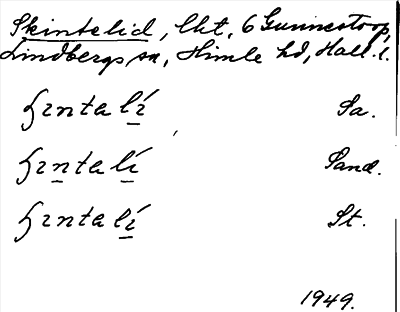 Skintelid, lht, 6 Gunnestorp,
Lindbergs sn, Himle hd, Hall. l.
ɧɪntalí Sa.
ɧɪn̲talí Sand.
ɧɪntalí St.
1949.